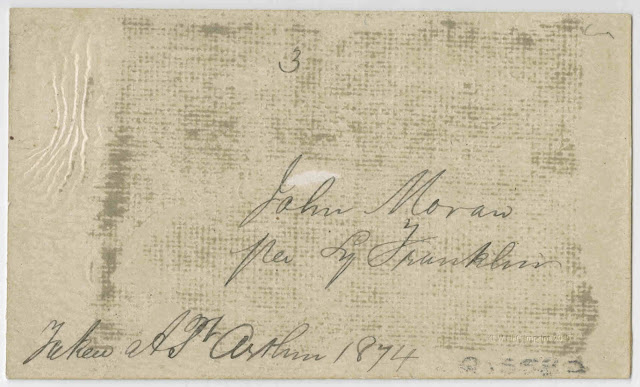 3
John Moran
per Ly Franklin
Taken at Pt Arthur 1874